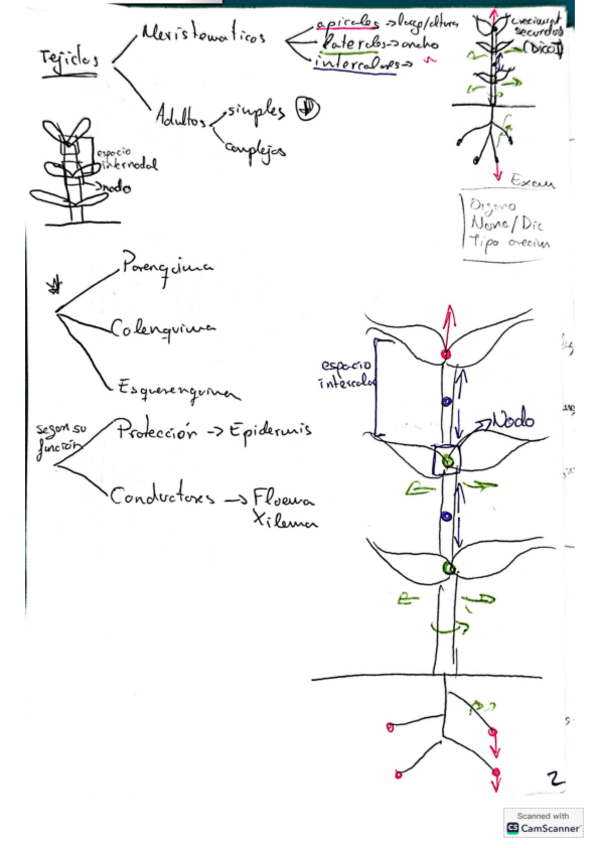 Tejidos
Meristematicos
apicales → largo/altura
laterales → ancho
intercalares →
Adultos
simples
complejos
crecimient
secundar
(Dicot)
espacio
internodal
nodo
Exam
Organo
Mono/Dic
Tipo crecim
Parenquima
Colenquima
Esquerenquima
segun su
función
Protección → Epidermis
Conductores → Floema
Xilema
espacio
intercala
Nodo
2
Scanned with
CS CamScanner